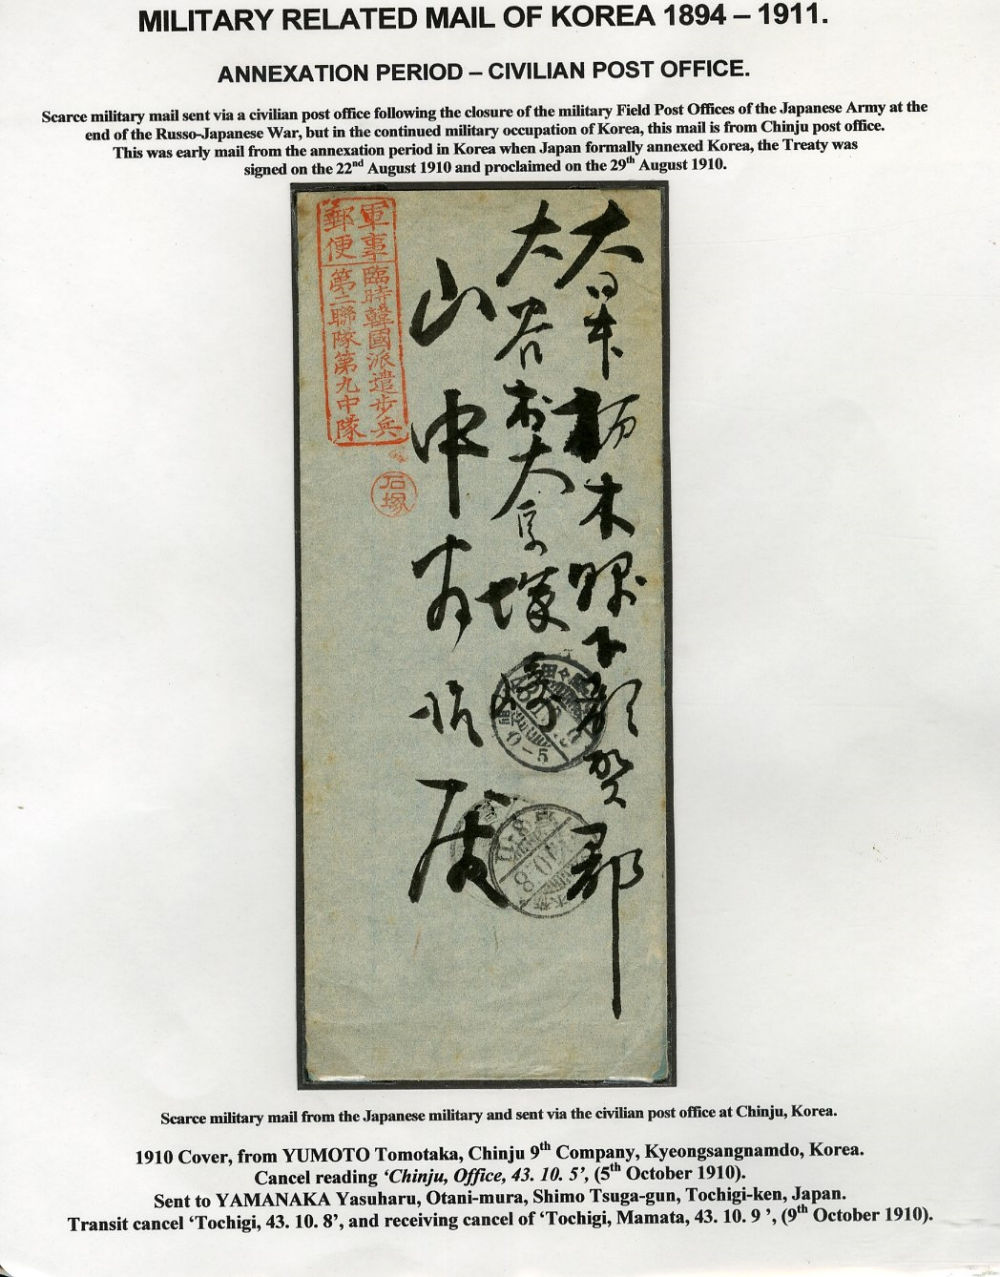 MILITARY RELATED MAIL OF KOREA 1894 – 1911.
ANNEXATION PERIOD – CIVILIAN POST OFFICE.
Scarce military mail sent via a civilian post office following the closure of the military Field Post Offices of the Japanese Army at the
end of the Russo-Japanese War, but in the continued military occupation of Korea, this mail is from Chinju post office.
This was early mail from the annexation period in Korea when Japan formally annexed Korea, the Treaty was
signed on the 22nd August 1910 and proclaimed on the 29th August 1910.
大日本栃木縣下都賀郡
大谷村大字塚崎
山中
軍事郵便
臨時韓國派遣步兵
第二聯隊第九中隊
石塚
0-5
Scarce military mail from the Japanese military and sent via the civilian post office at Chinju, Korea.
1910 Cover, from YUMOTO Tomotaka, Chinju 9th Company, Kyeongsangnamdo, Korea.
Cancel reading ‘Chinju, Office, 43. 10. 5’, (5th October 1910).
Sent to YAMANAKA Yasuharu, Otani-mura, Shimo Tsuga-gun, Tochigi-ken, Japan.
Transit cancel ‘Tochigi, 43. 10. 8’, and receiving cancel of ‘Tochigi, Mamata, 43. 10. 9 ’, (9th October 1910).